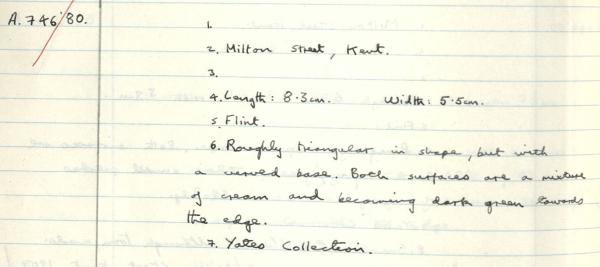 A.746'80.
1.
2. Milton Street, Kent.
3.
4. Length: 8.3cm. Width: 5.5cm.
5. Flint.
6. Roughly triangular in shape, but with
a curved base. Both surfaces are a mixture
of cream and becoming dark green towards
the edge.
7. Yates Collection.